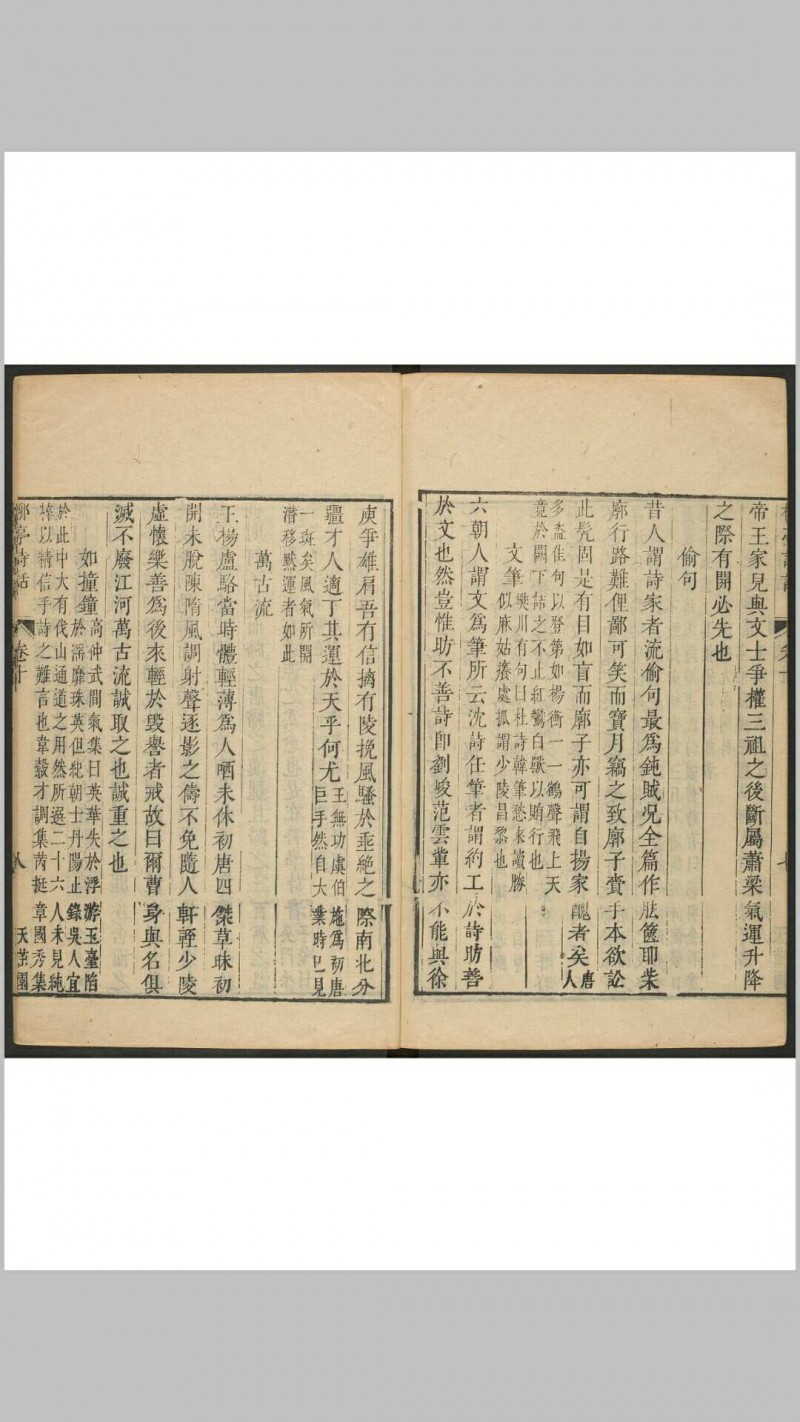 帝王家兒與文士爭權三祖之後斷屬蕭梁氣運升降
之際有開必先也
偷句
昔人謂詩家者流偷句最為鈍賊况全篇作胠篋耶柴
廓行路難俚鄙可笑而寶月竊之致廓子賷手本欲訟
此髡固是有目如盲而廓子亦可謂自揚家醜者矣唐人
多盗佳句以登第如楊衡一一鶴聲飛上天
竟於闕下詰之不止紅鸞白獸以賄行也
文筆 樊川有句曰杜詩韓筆愁来讀勝
似麻姑癢處抓謂少陵昌黎也
六朝人謂文為筆所云沈詩任筆者謂約工於詩昉善
於文也然豈惟昉不善詩即劉峻范雲軰亦不能與徐
庾爭雄肩吾有信摛有陵挽風騷於垂絶之際南北分
疆才人適丁其運於天乎何尤王無功虞伯施為初唐
巨手然自大業時已見
一斑矣風氣所開
潛移黙運者如此
萬古流
王楊盧駱當時體輕薄為人哂未休初唐四傑草昧初
開未脱陳隋風調射聲逐影之儔不免隨人軒輊少陵
虛懷樂善為後來輕於毁譽者戒故曰爾曹身與名俱
滅不廢江河萬古流誠取之也誠重之也
如撞鐘 高仲武間氣集曰英華失於浮游玉臺陷
於滛靡珠英但紀朝士丹陽止錄吳人宜
於此中大有伐山通道之用然所選二十六人未見純
詩之難言也韋縠才調集芮挺章國秀集
卷十
八
天葉園